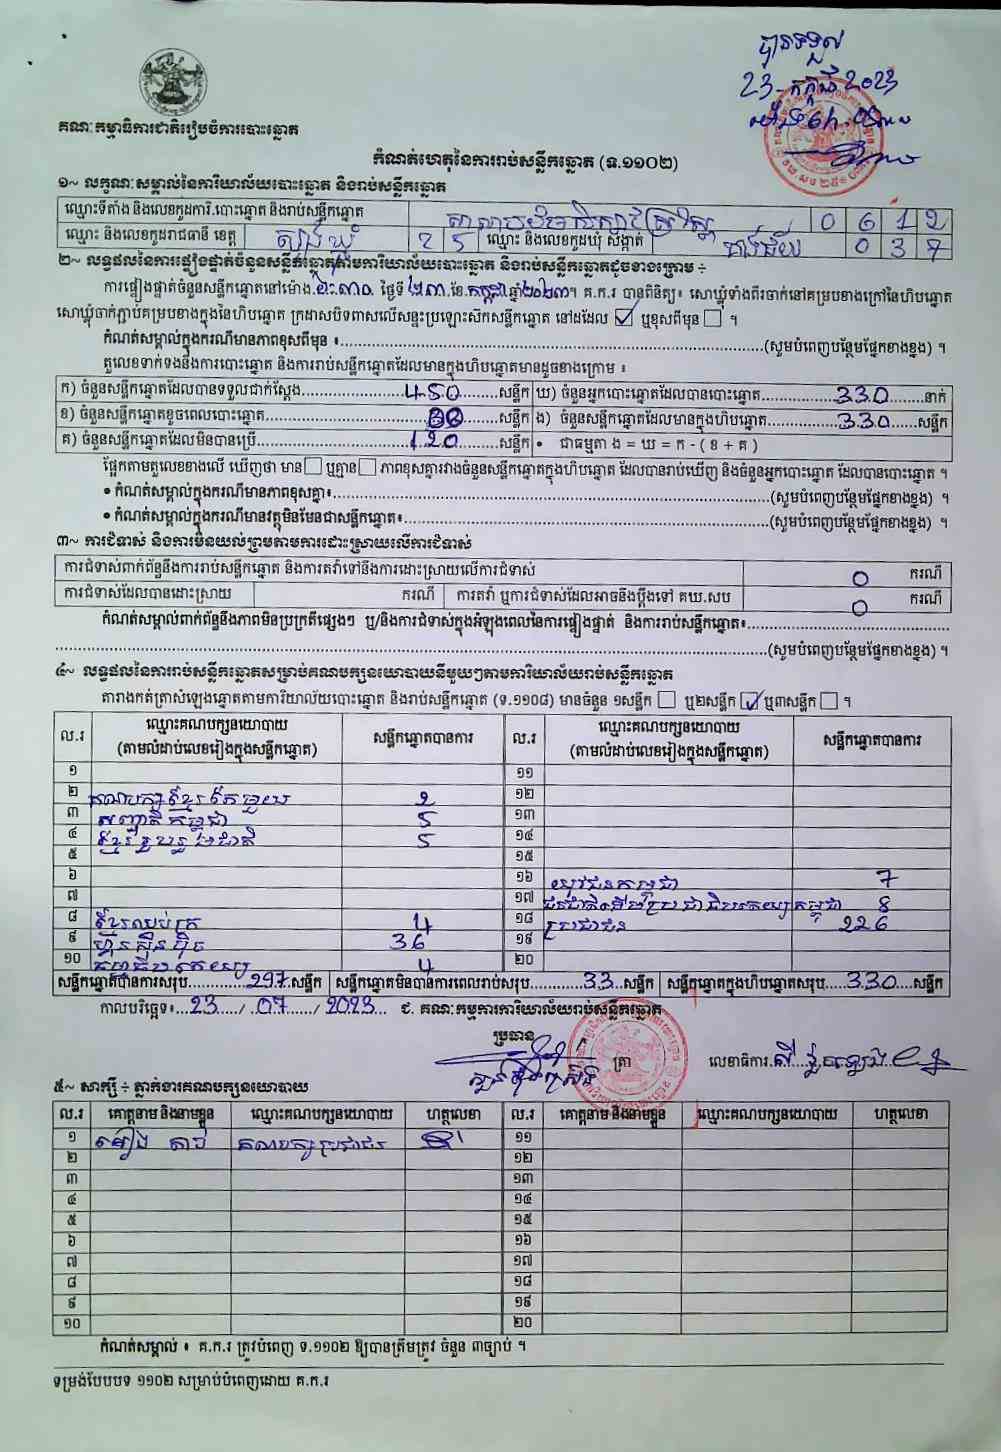 បានទទួល
23-កក្កដា 2023
គណៈកម្មាធិការជាតិរៀបចំការបោះឆ្នោត
កំណត់ហេតុនៃការរាប់សន្លឹកឆ្នោត (ទ.១១០២)
១~ លក្ខណៈសម្គាល់នៃការិយាល័យបោះឆ្នោត និងរាប់សន្លឹកឆ្នោត
ឈ្មោះទីតាំង និងលេខកូដការិ.បោះឆ្នោត និងរាប់សន្លឹកឆ្នោត 0 6 1 2
ឈ្មោះ និងលេខកូដរាជធានី ខេត្ត ត្បូងឃ្មុំ 2 5 ឈ្មោះ និងលេខកូដឃុំ សង្កាត់ 0 3 7
២~ លទ្ធផលនៃការផ្ទៀងផ្ទាត់ចំនួនសន្លឹកឆ្នោតតាមការិយាល័យបោះឆ្នោត និងរាប់សន្លឹកឆ្នោតដូចខាងក្រោម ÷
ការផ្ទៀងផ្ទាត់ចំនួនសន្លឹកឆ្នោតនៅម៉ោង ថ្ងៃទី ២៣ ខែ កក្កដា ឆ្នាំ២០២៣។ គ.ក.រ បានពិនិត្យ៖ សោឃ្លុំទាំងពីរចាក់នៅគម្របខាងក្រៅនៃហិបឆ្នោត
សោឃ្លុំចាក់ភ្ជាប់គម្របខាងក្នុងនៃហិបឆ្នោត ក្រដាសបិទពាសលើសន្ទះប្រឡោះសឹកសន្លឹកឆ្នោត នៅដដែល ☑ ឬខុសពីមុន ☐ ។
កំណត់សម្គាល់ក្នុងករណីមានភាពខុសពីមុន ៖ (សូមបំពេញបន្ថែមផ្នែកខាងខ្នង) ។
តួលេខទាក់ទងនឹងការបោះឆ្នោត និងការរាប់សន្លឹកឆ្នោតដែលមានក្នុងហិបឆ្នោតមានដូចខាងក្រោម ៖
ក) ចំនួនសន្លឹកឆ្នោតដែលបានទទួលជាក់ស្តែង 450 សន្លឹក ឃ) ចំនួនអ្នកបោះឆ្នោតដែលបានបោះឆ្នោត 330 នាក់
ខ) ចំនួនសន្លឹកឆ្នោតខូចពេលបោះឆ្នោត 00 សន្លឹក ង) ចំនួនសន្លឹកឆ្នោតដែលមានក្នុងហិបឆ្នោត 330 សន្លឹក
គ) ចំនួនសន្លឹកឆ្នោតដែលមិនបានប្រើ 120 សន្លឹក • ជាធម្មតា ង = ឃ = ក - ( ខ + គ )
ផ្អែកតាមតួលេខខាងលើ ឃើញថា មាន ☐ ឬគ្មាន ☐ ភាពខុសគ្នារវាងចំនួនសន្លឹកឆ្នោតក្នុងហិបឆ្នោត ដែលបានរាប់ឃើញ និងចំនួនអ្នកបោះឆ្នោត ដែលបានបោះឆ្នោត ។
• កំណត់សម្គាល់ក្នុងករណីមានភាពខុសគ្នា៖ (សូមបំពេញបន្ថែមផ្នែកខាងខ្នង) ។
• កំណត់សម្គាល់ក្នុងករណីមានវត្ថុមិនមែនជាសន្លឹកឆ្នោត៖ (សូមបំពេញបន្ថែមផ្នែកខាងខ្នង) ។
៣~ ការជំទាស់ និងការមិនយល់ព្រមតាមការដោះស្រាយលើការជំទាស់
ការជំទាស់ពាក់ព័ន្ធនឹងការរាប់សន្លឹកឆ្នោត និងការតវ៉ាទៅនឹងការដោះស្រាយលើការជំទាស់ 0 ករណី
ការជំទាស់ដែលបានដោះស្រាយ ករណី ការតវ៉ា ឬការជំទាស់ដែលអាចនឹងប្តឹងទៅ គឃ.សប 0 ករណី
កំណត់សម្គាល់ពាក់ព័ន្ធនឹងភាពមិនប្រក្រតីផ្សេងៗ ឬ/និងការជំទាស់ក្នុងអំឡុងពេលនៃការផ្ទៀងផ្ទាត់ និងការរាប់សន្លឹកឆ្នោត៖
(សូមបំពេញបន្ថែមផ្នែកខាងខ្នង) ។
៤~ លទ្ធផលនៃការរាប់សន្លឹកឆ្នោតសម្រាប់គណបក្សនយោបាយនីមួយៗតាមការិយាល័យរាប់សន្លឹកឆ្នោត
តារាងកត់ត្រាសំឡេងឆ្នោតតាមការិយាល័យបោះឆ្នោត និងរាប់សន្លឹកឆ្នោត (ទ.១១០៨) មានចំនួន ១សន្លឹក ☐ ឬ២សន្លឹក ☑ ឬ៣សន្លឹក ☐ ។
ល.រ ឈ្មោះគណបក្សនយោបាយ (តាមលំដាប់លេខរៀងក្នុងសន្លឹកឆ្នោត) សន្លឹកឆ្នោតបានការ ល.រ ឈ្មោះគណបក្សនយោបាយ (តាមលំដាប់លេខរៀងក្នុងសន្លឹកឆ្នោត) សន្លឹកឆ្នោតបានការ
១ ១១
២ គណបក្សខ្មែរតែមួយ 2 ១២
៣ សញ្ជាតិកម្ពុជា 5 ១៣
៤ ខ្មែររួបរួមជាតិ 5 ១៤
៥ ១៥
៦ ១៦ យុវជនកម្ពុជា 7
៧ ១៧ ជនជាតិដើមប្រជាធិបតេយ្យកម្ពុជា 8
៨ ខ្មែរឈប់ក្រ 4 ១៨ ប្រជាជន 226
៩ ហ៊្វុនស៊ិនប៉ិច 36 ១៩
១០ 4 ២០
សន្លឹកឆ្នោតបានការសរុប 297 សន្លឹក សន្លឹកឆ្នោតមិនបានការពេលរាប់សរុប 33 សន្លឹក សន្លឹកឆ្នោតក្នុងហិបឆ្នោតសរុប 330 សន្លឹក
កាលបរិច្ឆេទ៖ 23 / 07 / 2023 ជ. គណៈកម្មការការិយាល័យរាប់សន្លឹកឆ្នោត
ប្រធាន
ត្រា លេខាធិការ
៥~ សាក្សី ÷ ភ្នាក់ងារគណបក្សនយោបាយ
ល.រ គោត្តនាម និងនាមខ្លួន ឈ្មោះគណបក្សនយោបាយ ហត្ថលេខា ល.រ គោត្តនាម និងនាមខ្លួន ឈ្មោះគណបក្សនយោបាយ ហត្ថលេខា
១ គណបក្សប្រជាជន ១១
២ ១២
៣ ១៣
៤ ១៤
៥ ១៥
៦ ១៦
៧ ១៧
៨ ១៨
៩ ១៩
១០ ២០
កំណត់សម្គាល់ ៖ គ.ក.រ ត្រូវបំពេញ ទ.១១០២ ឱ្យបានត្រឹមត្រូវ ចំនួន ៣ច្បាប់ ។
ទម្រង់បែបបទ ១១០២ សម្រាប់បំពេញដោយ គ.ក.រ